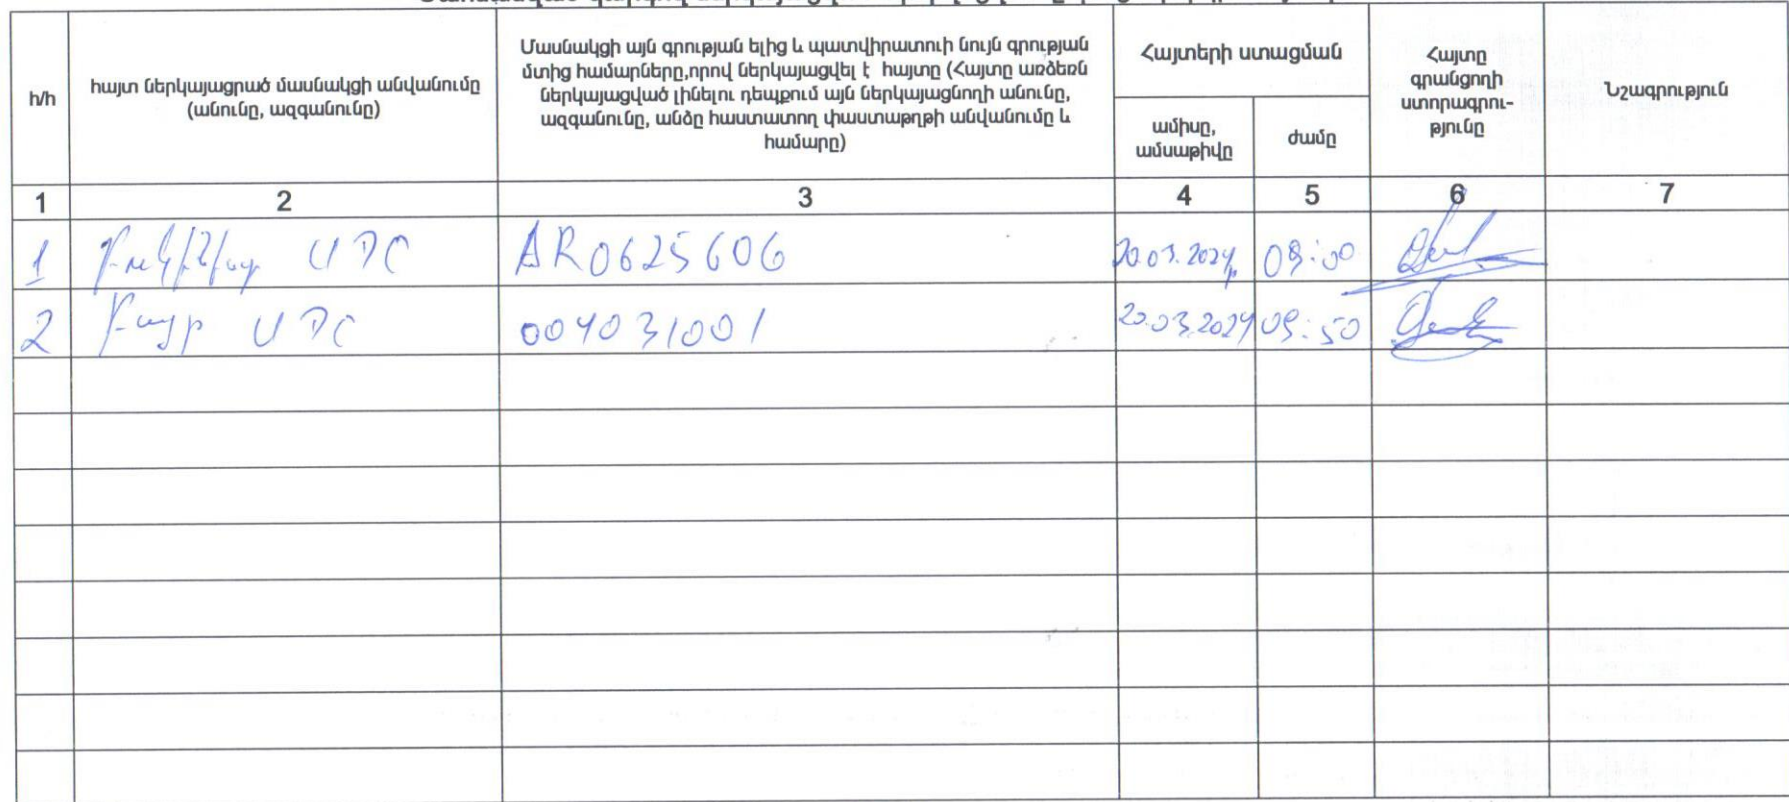 հ/հ
հայտ ներկայացրած մասնակցի անվանումը
(անունը, ազգանունը)
Մասնակցի այն գրության ելից և պատվիրատուի նույն գրության
մտից համարները,որով ներկայացվել է հայտը (Հայտը առձեռն
ներկայացված լինելու դեպքում այն ներկայացնողի անունը,
ազգանունը, անձը հաստատող փաստաթղթի անվանումը և
համարը)
Հայտերի ստացման
ամիսը,
ամսաթիվը
ժամը
Հայտը
գրանցողի
ստորագրու-
թյունը
Նշագրություն
1 2 3 4 5 6 7
1 ՍՊԸ AR0625606 20.03.2024թ
2 ՍՊԸ 004031001 20.03.2024 09:50